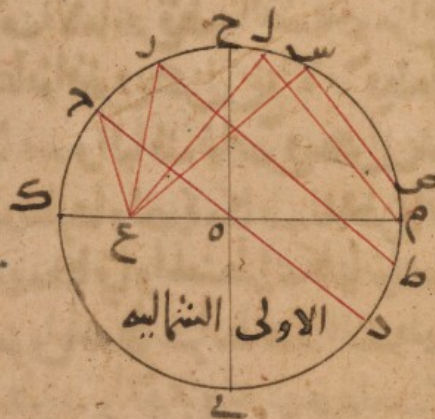 ح
ل
س
ر
ح
ص
ك
ع
ه
م
ط
د
الاولى الشماليه